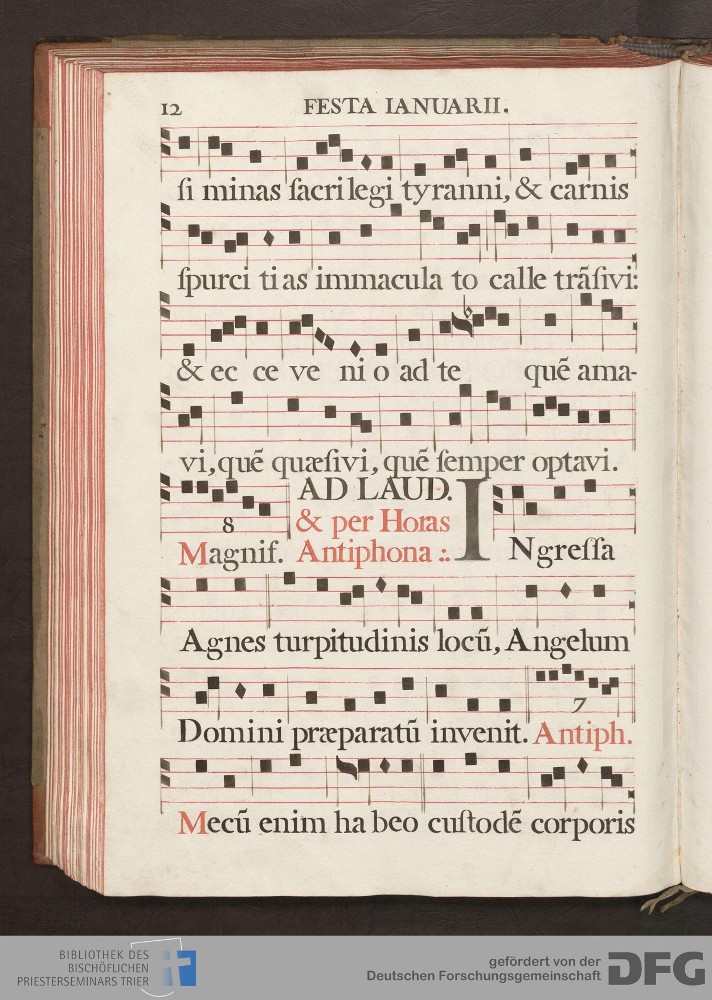 12 FESTA IANUARII.
ſi minas ſacri legi tyranni, & carnis
ſpurci ti as immacula to calle trãſivi:
& ec ce ve ni o ad te quẽ ama-
vi, quẽ quæſivi, quẽ ſemper optavi.
8
Magnif.
AD LAUD.
& per Horas
Antiphona :.
INgreſſa
Agnes turpitudinis locũ, Angelum
7
Domini præparatũ invenit. Antiph.
Mecũ enim ha beo cuſtodẽ corporis
BIBLIOTHEK DES
BISCHÖFLICHEN
PRIESTERSEMINARS TRIER
gefördert von der
Deutschen Forschungsgemeinschaft
DFG